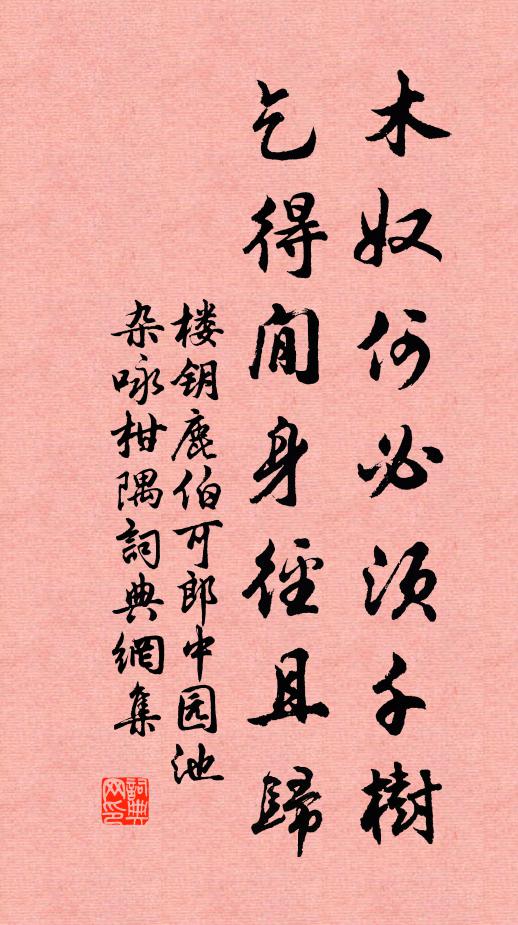 木奴何必须千樹
乞得閒身徑且歸
楼钥鹿伯可郎中园池
杂咏柑隅詞典網集
詞典网印